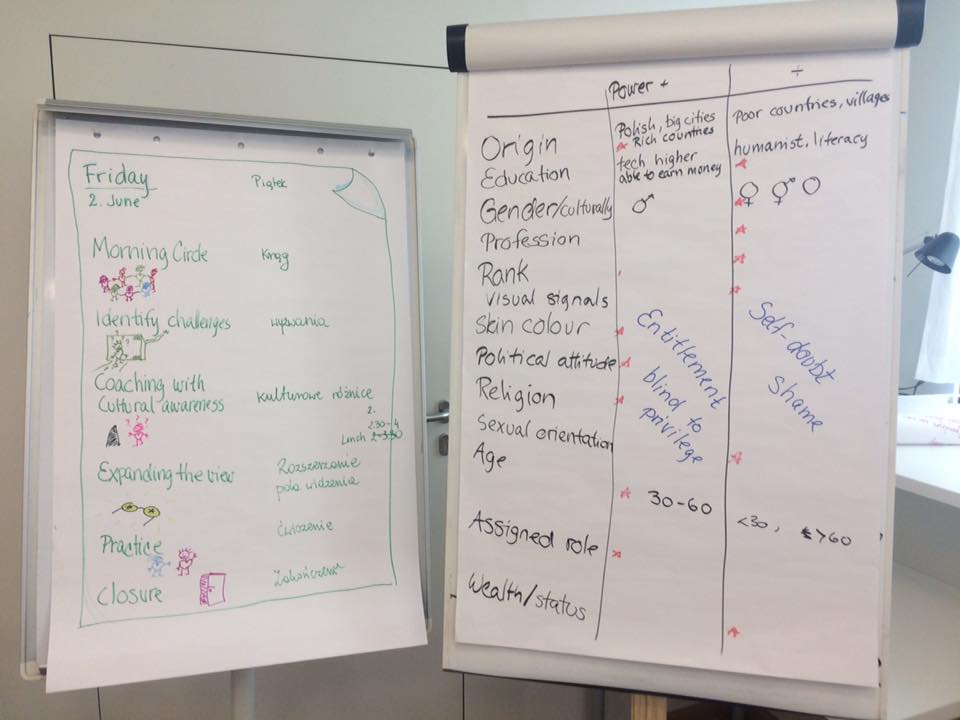 Friday
Piątek
2. June
Morning Circle
Krąg
Identify challenges
wyzwania
Coaching with
Cultural awareness
kulturowe różnice
2.
2³⁰-4
Lunch
Expanding the view
Rozszerzanie
pola widzenia
Practice
Ćwiczenie
Closure
Power +
÷
Origin
Polish, big cities
Rich countries
Poor countries, villages
Education
tech higher
able to earn money
humanist, literacy
Gender/culturally
♂
♀ ⚥ O
Profession
Rank
Visual signals
Skin colour
Political attitude
Religion
Sexual orientation
Age
30-60
<30, >60
Assigned role
Wealth/status
Entitlement
blind to
privilege
Self-doubt
Shame